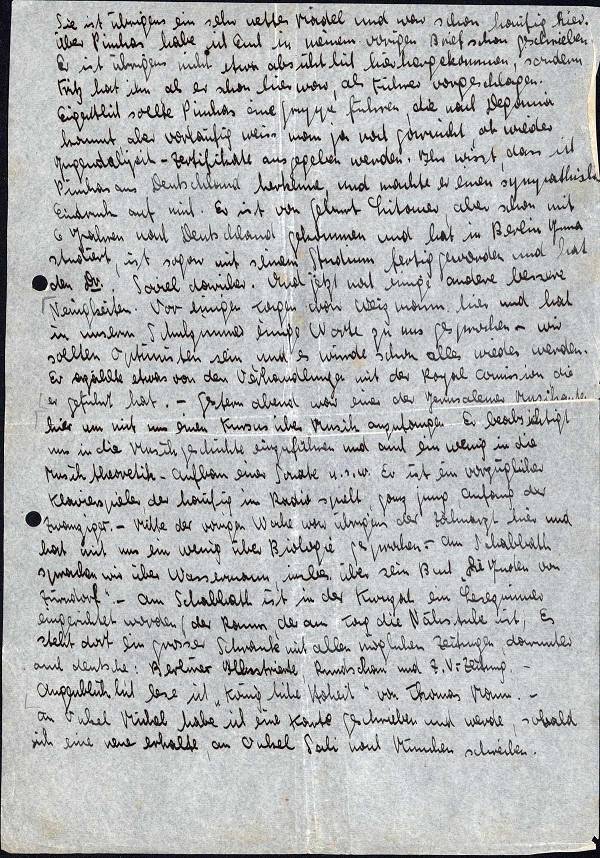 Sie ist übrigens ein sehr nettes Mädel und war schon häufig hier.
Über Pinhas habe ich Euch in meinem vorigen Brief schon geschrieben
Er ist übrigens nicht etwa absichtlich hierhergekommen, sondern
Fritz hat ihn als er schon hier war, als Führer vorgeschlagen.
Eigentlich sollte Pinhas eine Gruppe führen, die nach Degania
kommt, aber vorläufig weiss man ja noch garnicht ob wieder
Jugendalijah-Zertifikate ausgegeben werden. Ihr wisst, dass ich
Pinhas aus Deutschland her kenne, und machte er einen sympathischen
Eindruck auf mich. Er ist von Geburt Litauer, aber schon mit
6 Jahren nach Deutschland gekommen und hat in Berlin
studiert, ist sogar mit seinem Studium fertig geworden und hat
den Dr. Soviel darüber. Und jetzt noch einige andere bessere
Neuigkeiten. Vor einigen Tagen war Weizmann hier und hat
in unserm Schulzimmer einige Worte zu uns gesprochen – wir
sollten Optimisten sein und es würde schon alles wieder werden.
Er erzählte etwas von den Verhandlungen mit der Royal Comission die
er geführt hat. – Gestern abend war einer der Jerusalemer Musikanten
hier um mit uns einen Kursus über Musik anzufangen. Er beabsichtigt
uns in die Musikgeschichte einzuführen und auch ein wenig in die
Musiktheoretik – Aufbau einer Sonate u.s.w. Er ist ein vorzüglicher
Klavierspieler der häufig im Radio spielt ganz jung Anfang der
Zwanziger. – Mitte der vorigen Woche war übrigens der Zahnarzt hier und
hat mit uns ein wenig über Biologie gesprochen. – Am Schabbath
sprachen wir über Wassermann, insbes. über sein Buch "Die Juden von
Zirndorf". – Am Schabbath ist in der Kwuzah ein Lesezimmer
eingerichtet worden (der Raum, der am Tag die Nähstube ist). Es
steht dort ein grosser Schrank mit allen möglichen Zeitungen darunter
auch deutsche: Berliner Illustrierte, Rundschau und C.V.-Zeitung. –
Augenblicklich lese ich "Königliche Hoheit" von Thomas Mann. –
An Onkel Michel habe ich eine Karte geschrieben und werde, sobald
ich eine neue erhalte, an Onkel Sali nach München schreiben.